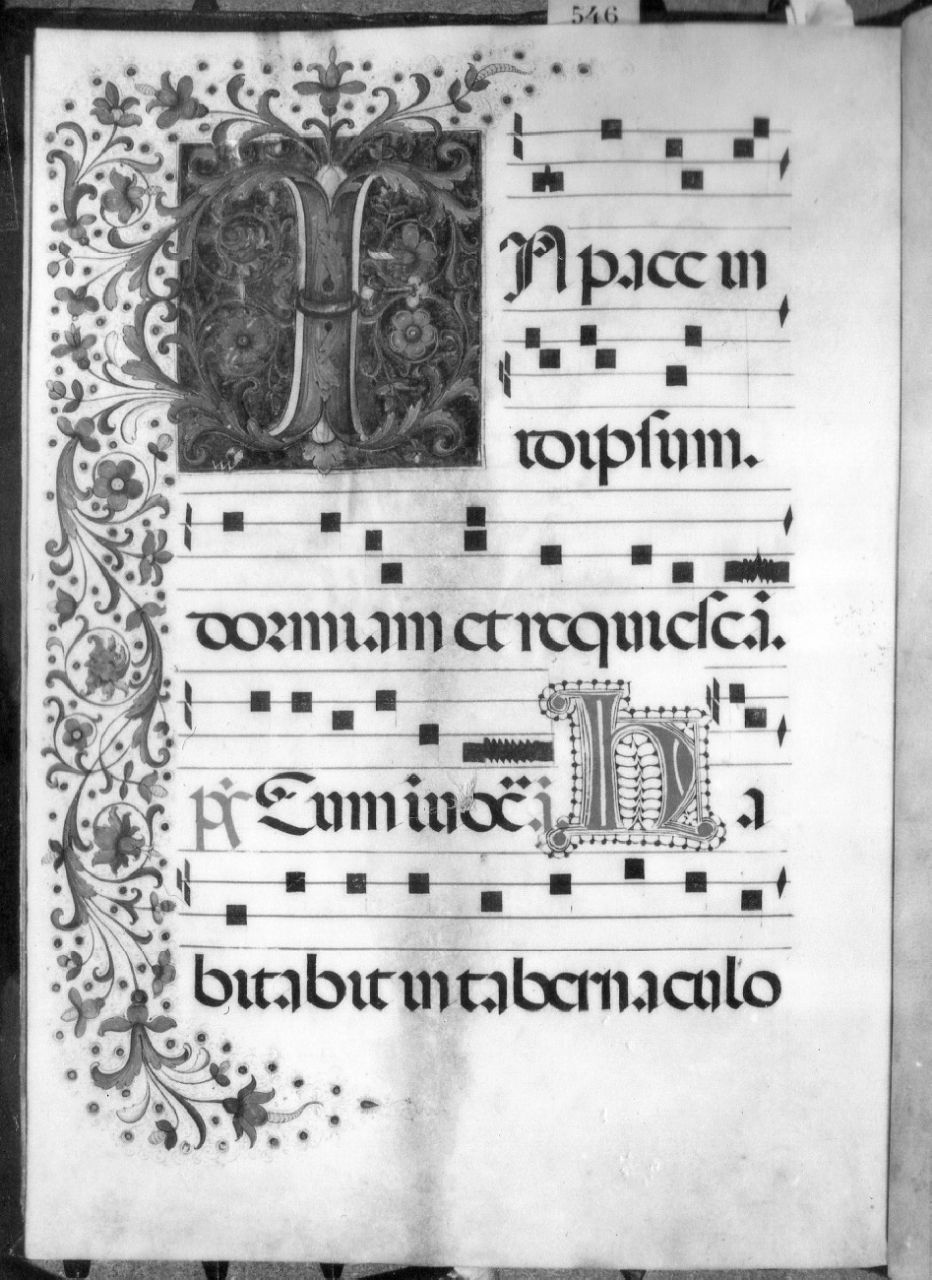 546
IN pace in
idipsum.
dormiam et requiescā.
ps̄ Cum inuoc̄ i ha
bitabit in tabernaculo